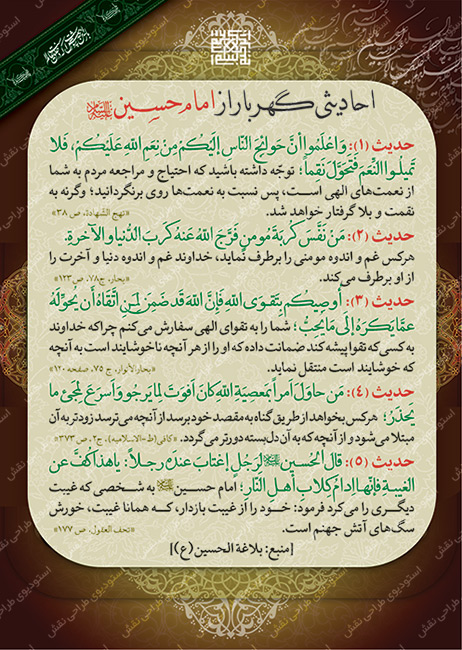 احادیثی گهربار از امام حسین علیه‌السلام
حدیث (۱): وَاعْلَمُوا أنَّ حَوائِجَ النّاسِ إلَیْکُمْ مِنْ نِعَمِ اللّهِ عَلَیْکُمْ، فَلا
تَمیلُـوا النِّعَمَ فَتَحَوَّلَ نَقَماً؛ توجّه داشته باشید که احتیاج و مراجعه مردم به شما
از نعمت‌های الهی است، پس نسبت به نعمت‌ها روی برنگردانید؛ وگرنه به
نقمت و بلا گرفتار خواهد شد. «نهج الشّهادة، ص ۳۸»
حدیث (۲): مَنْ نَفَّسَ کُرْبَةَ مُؤمِنٍ فَرَّجَ اللّهُ عَنهُ کُرَبَ الدُّنیا وَالآخِرَةِ.
هرکس غم و اندوه مومنی را برطرف نماید، خداوند غم و اندوه دنیا و آخرت را
از او برطرف می‌کند. «بحار، ج۷۸، ص ۱۲۳»
حدیث (۳): أُوصِیکُم بِتَقوَی اللّهِ فَإنَّ اللّهَ قَد ضَمِنَ لِمَنِ اتَّقاهُ أَن یُحَوِّلَهُ
عَمّا یَکرَهُ إلَی ما یُحِبُّ؛ شما را به تقوای الهی سفارش می‌کنم چراکه خداوند
به کسی که تقوا پیشه کند ضمانت داده که او را از هر آنچه ناخوشایند است به آنچه
که خوشایند است منتقل نماید. «بحارالأنوار، ج ۷۵، صفحه ۱۲۰»
حدیث (۴): مَن حاوَلَ أمراً بِمَعصِیَةِ اللّهِ کانَ أفوَتَ لِما یَرجُو وَ أسرَعَ لِمَجیءِ ما
یَحذَرُ؛ هرکس بخواهد از طریق گناه به مقصد خود برسد از آنچه می‌ترسد زودتر به آن
مبتلا می‌شود و از آنچه که به آن دل‌بسته دورتر می‌گردد. «کافی(ط-الاسلامیه)، ج۲، ص ۳۷۳»
حدیث (۵): قالَ الحُسَینُ علیه‌السلام لِرَجُلٍ إغتابَ عِندَهُ رَجُلاً: یا هذا کُفَّ عَنِ
الغیبَةِ فَإنَّها إدامُ کِلابِ أهلِ النّارِ؛ امام حسین علیه‌السلام به شخصی که غیبت
دیگری را می‌کرد فرمود: خود را از غیبت بازدار، کـه همانا غیبت، خورش
سگ‌های آتش جهنم است. «تحف العقول، ص ۱۷۷»
[منبع: بلاغة الحسین (ع)]
استودیوی طراحی نقش